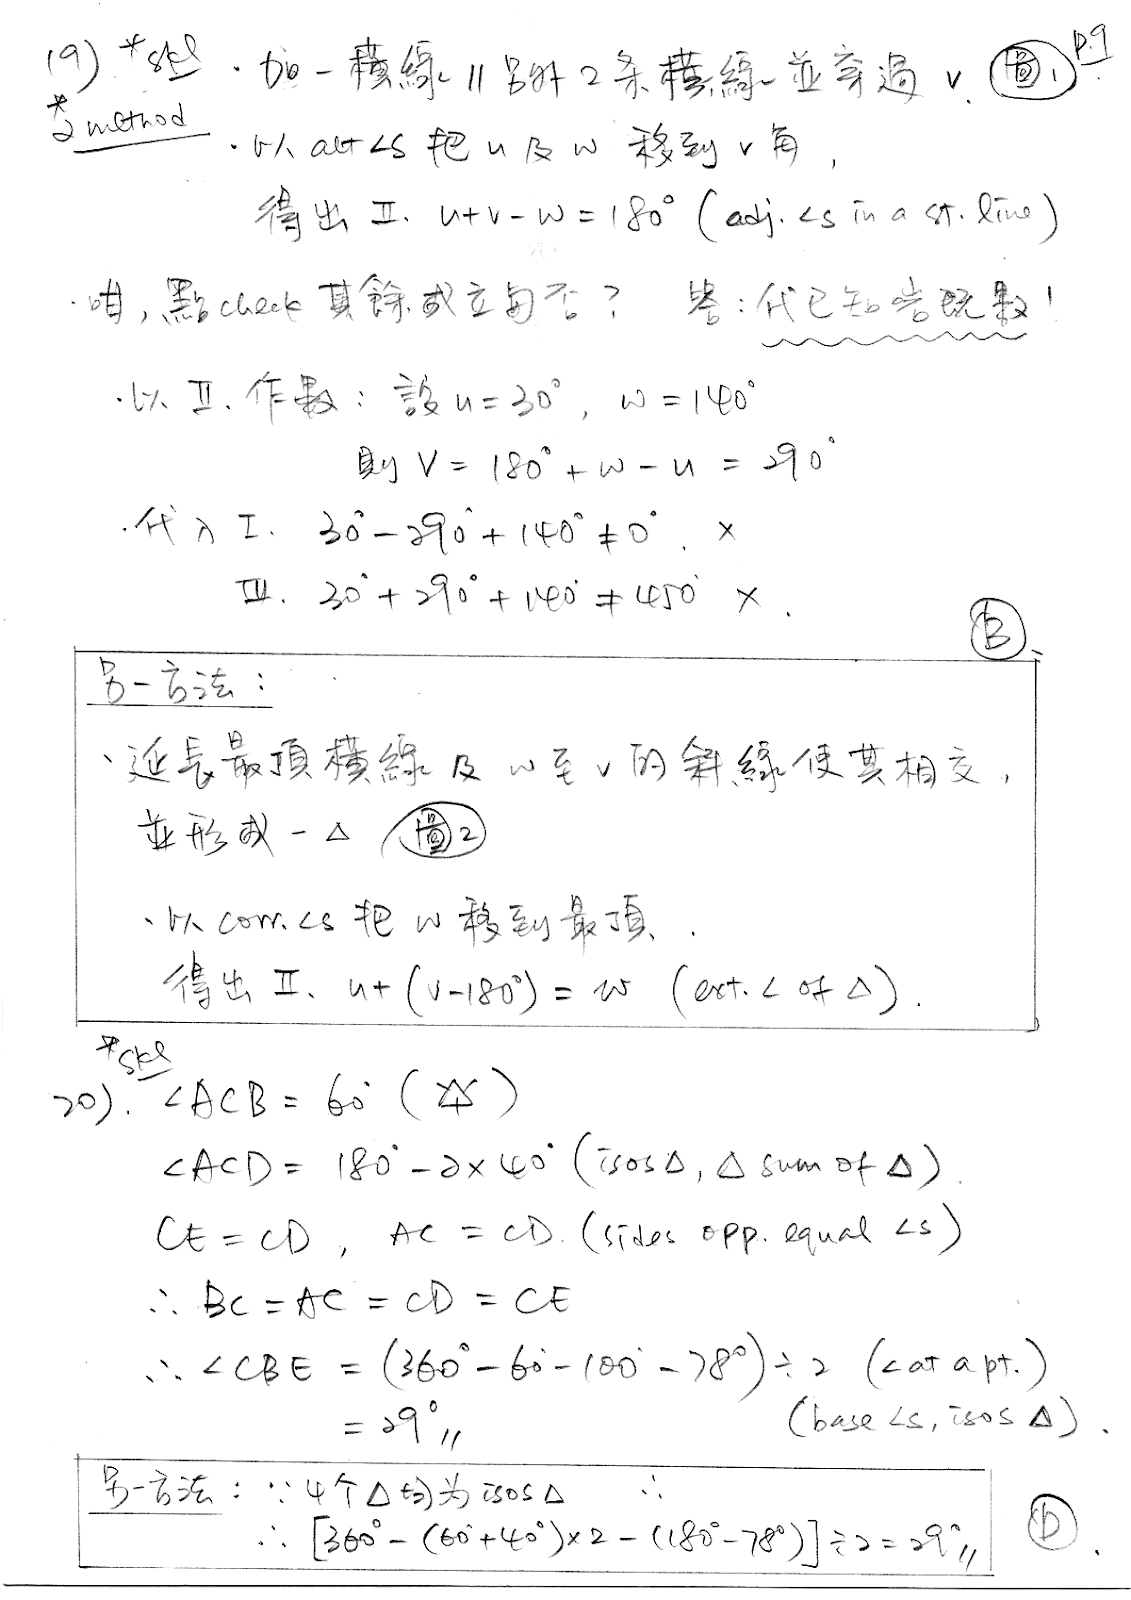 p.9
19) *skl · 加一橫線 // 另外2条橫線並穿過 v. 圖1
*2 method
· 以 alt ∠s 把 u 及 w 移到 v 角,
得出 II. u+v-w=180° (adj. ∠s in a st. line)
· 咁, 點 check 其餘成立與否? 答: 代已知岩既數!
· 以 II. 作數: 設 u=30°, w=140°
則 V = 180°+w-u = 290°
· 代入 I. 30°-290°+140°≠0°. ×
III. 30°+290°+140°≠450° ×.
B
另一方法:
· 延長最頂橫線及 w 至 v 的斜線使其相交,
並形成一△ 圖2
· 以 corr. ∠s 把 w 移到最頂.
得出 II. u+(v-180°) = w (ext. ∠ of △).
*skl
20). ∠ACB = 60°
∠ACD = 180°-2×40° (isos△, △ sum of △).
CE = CD, AC = CD. (sides opp. equal ∠s)
∴ BC = AC = CD = CE
∴ ∠CBE = (360°-60°-100°-78°)÷2 (∠ at a pt.)
= 29°// (base ∠s, isos △).
另一方法: ∵ 4个△均为 isos △ ∴
∴ [360°-(60°+40°)×2-(180°-78°)]÷2=29°//
D.